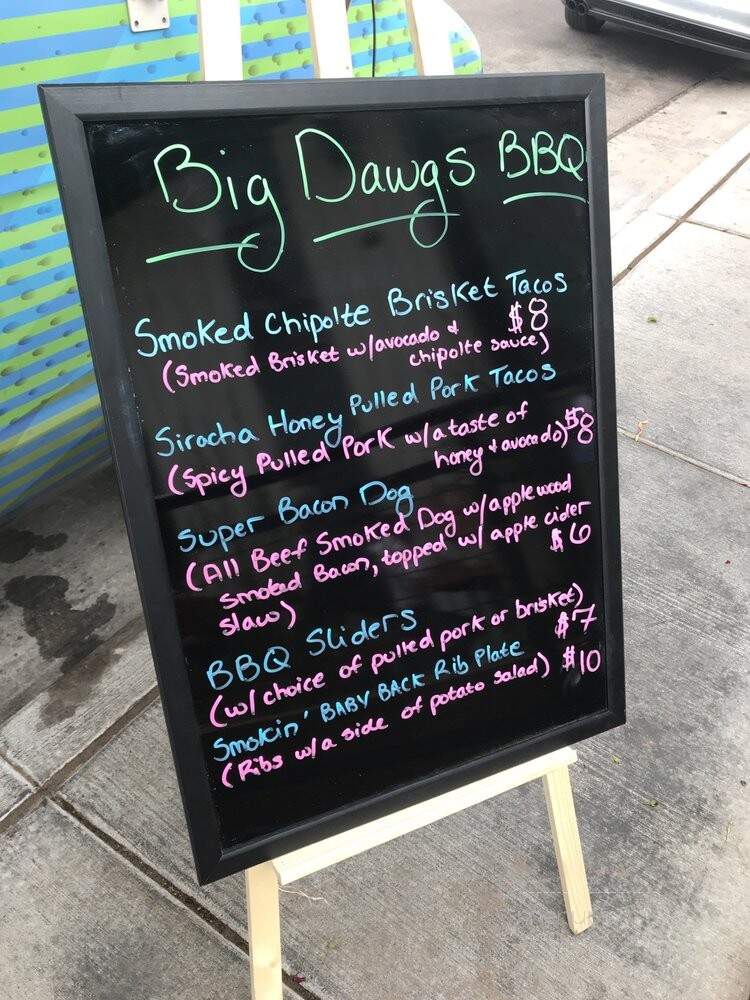 Big Dawgs BBQ
Smoked Chipolte Brisket Tacos
$8
(Smoked Brisket w/avocado &
chipolte sauce)
Siracha Honey Pulled Pork Tacos
(Spicy Pulled Pork w/a taste of
honey & avocado) $8
Super Bacon Dog
(All Beef Smoked Dog w/applewood
smoked Bacon, topped w/ apple cider
slaw) $6
BBQ Sliders
(w/choice of pulled pork or brisket)
$7
Smokin' BABY BACK Rib Plate
(Ribs w/a side of potato salad) $10